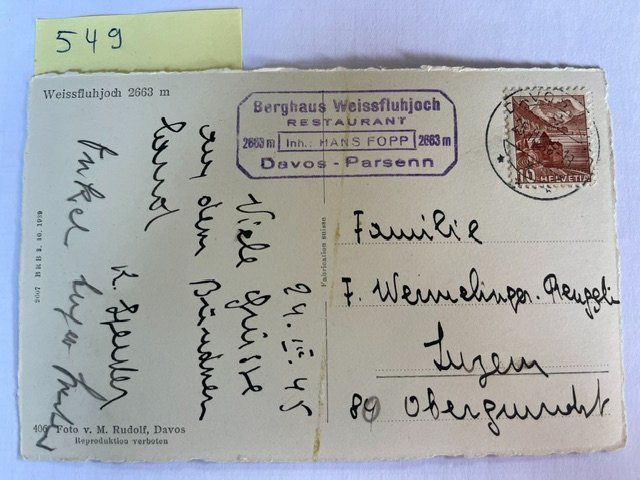 549
Weissfluhjoch 2663 m
Berghaus Weissfluhjoch
RESTAURANT
2663 m Inh.: HANS FOPP 2663 m
Davos - Parsenn
10 HELVETIA
24. III. 45
Viele Grüsse
aus dem Bündner
Land
K.
Onkel
Familie
F. Wermelinger-Renggli
Luzern
89 Obergundst
Fabrication suisse
2007 BRB 3. 10. 1939
406 Foto v. M. Rudolf, Davos
Reproduktion verboten